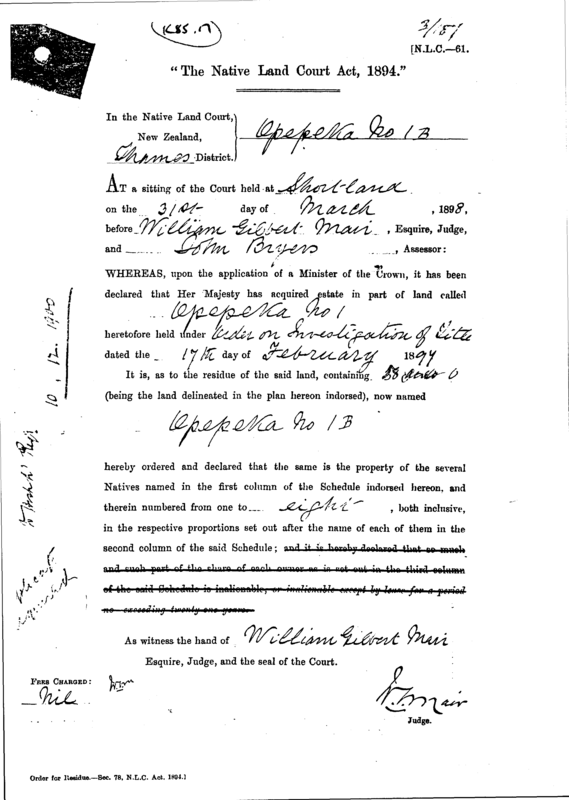 (KSS. 17)
3/151
[N.L.C.—61.
"The Native Land Court Act, 1894."
In the Native Land Court,
New Zealand,
Thames District.
Opepeka No 1B
AT a sitting of the Court held at Shortland
on the 31st day of March, 1898,
before William Gilbert Mair, Esquire, Judge,
and John Bryers, Assessor:
WHEREAS, upon the application of a Minister of the Crown, it has been
declared that Her Majesty has acquired estate in part of land called
Opepeka No 1
heretofore held under Order on Investigation of Title
dated the 17th day of February 1894
It is, as to the residue of the said land, containing 38 acres 0
(being the land delineated in the plan hereon indorsed), now named
Opepeka No 1B
hereby ordered and declared that the same is the property of the several
Natives named in the first column of the Schedule indorsed hereon, and
therein numbered from one to eight, both inclusive,
in the respective proportions set out after the name of each of them in the
second column of the said Schedule; and it is hereby declared that so much
and such part of the share of each owner as is set out in the third column
of the said Schedule is inalienable, or inalienable except by lease for a period
no exceeding twenty-one years.
As witness the hand of William Gilbert Mair
Esquire, Judge, and the seal of the Court.
FEES CHARGED:
Nil
W.G. Mair
Judge.
Order for Residue.—Sec. 78, N.L.C. Act. 1894.]
10. 12. 1900